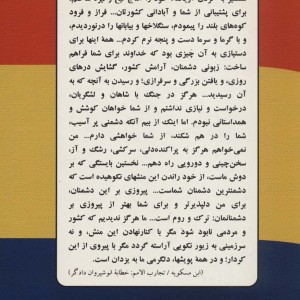 برای پشتیبانی از شما و آبادانی کشورتان... فراز و فرود
کوه‌های بلند را پیمودم، سنگلاخها و بیابانها را درنوردیدم،
و با گرما و سرما دست و پنجه نرم کردم... همهٔ اینها برای
دستیازی به آن چیزی بود که خداوند برای شما فراهم
ساخت: زبونی دشمنان، آرامش کشور، گشایش درهای
روزی، و یافتن بزرگی و سرفرازی؛ و رسیدن به آنچه که به
آن رسیدید... هرگز در جنگ با شاهان و لشگریان،
درخواست و نیازی نداشتم و از شما خواهان کوشش و
همداستانی نبودم. اما اینک از بیم آنکه دشمنی پر آسیب،
شما را در هم شکند، از شما خواهشی دارم... من
نمی‌خواهم هرگز به پراکنده‌دلی، سرکشی، رشگ و آز،
سخن‌چینی و دورویی راه دهم... نخستین بایستگی که بر
دوش ماست، از خود راندن این منشهای نکوهیده است که
دشمنترین دشمنان شماست... پیروزی بر این دشمنان،
برای من دلپذیرتر و برای شما بهتر از پیروزی بر
دشمنالمان؛ ترک و روم است... ما هرگز ندیدیم که کشور
و مردمی نابود شود مگر با کنارنهادن این منش، و نه
سرزمینی به زیور نکویی آراسته گردد مگر با پیروی از این
کردار؛ و در همهٔ پویشها، دلگرمی ما به یزدان است.
(ابن مسکویه / تجارب الامم: خطابهٔ انوشیروان دادگر)